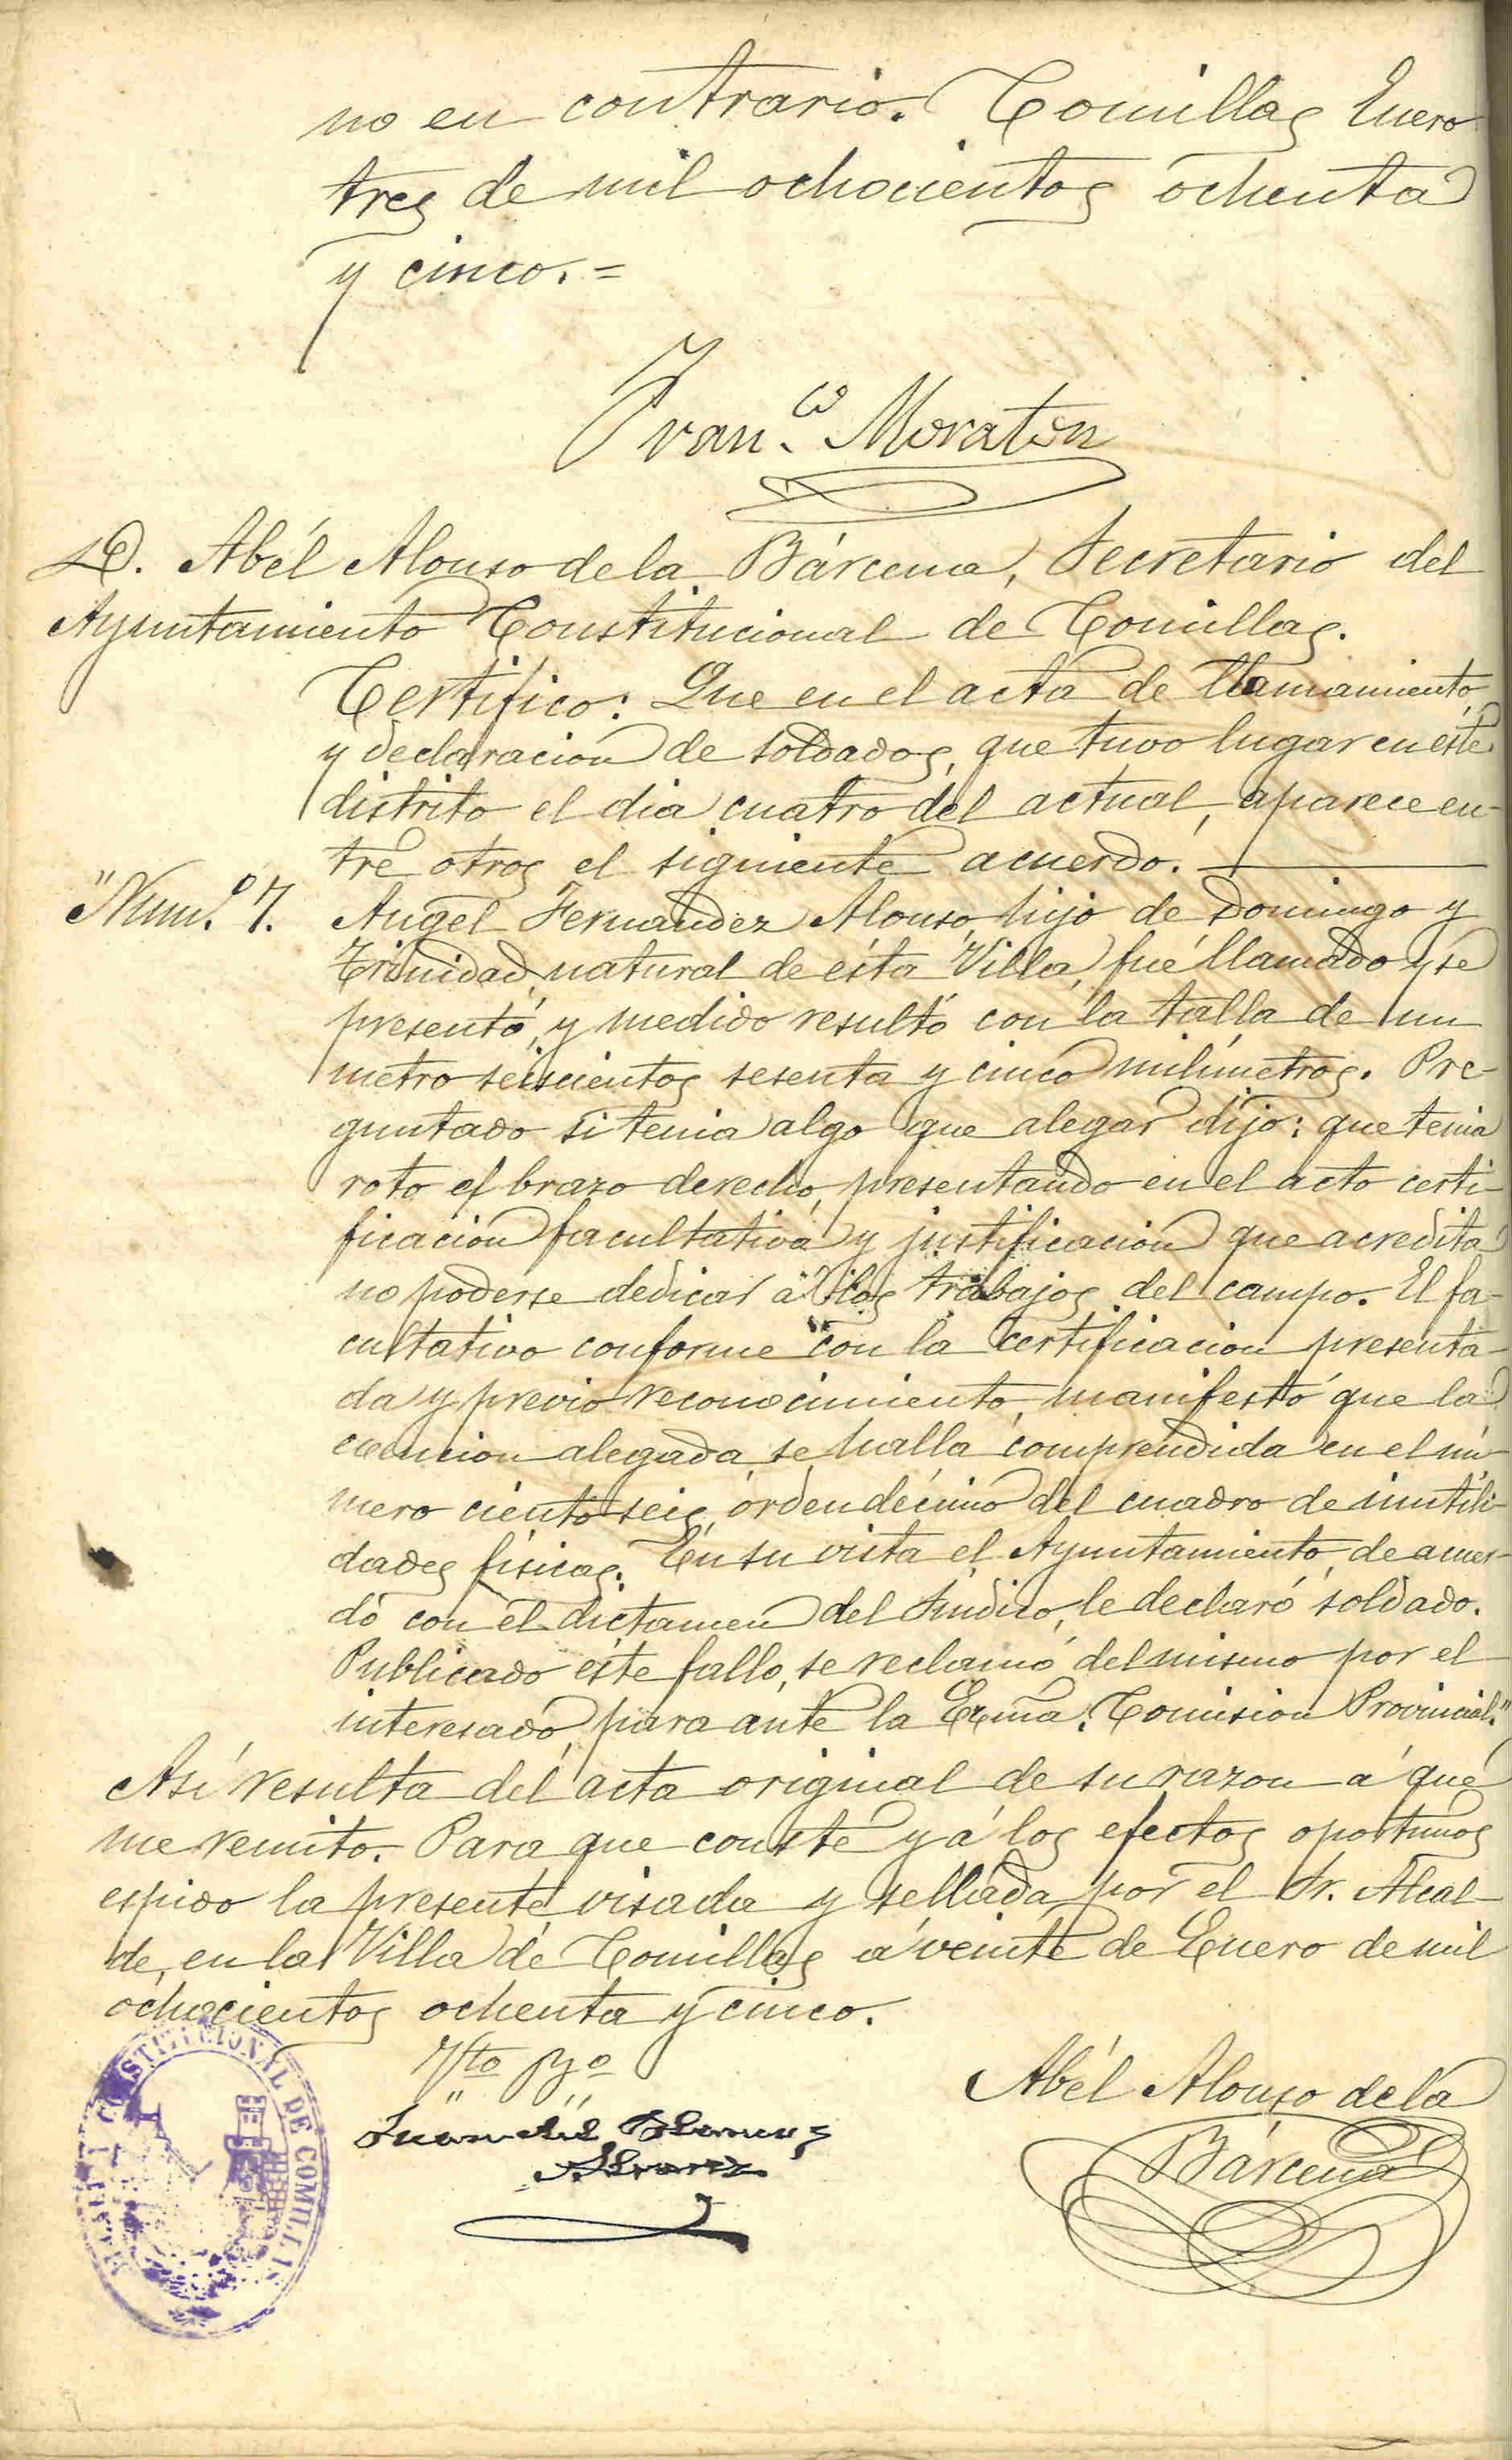 no en contrario. Comillas Enero
tres de mil ochocientos ochenta
y cinco. =
Fran.co Moraton
D. Abél Alonso de la Bárcena, Secretario del
Ayuntamiento Constitucional de Comillas.
Certifico: Que en el acta de llamamiento
y declaracion de soldados, que tuvo lugar en éste
distrito el dia cuatro del actual, aparece en-
tre otros el siguiente acuerdo.
"Num.o 7. Angel Fernandez Alonso, hijo de Domingo y
Trinidad, natural de ésta Villa, fué llamado y se
presentó, y medido resultó con la talla de un
metro seiscientos sesenta y cinco milimetros. Pre-
guntado si tenia algo que alegar dijo: que tenia
roto el brazo derecho, presentando en el acto certi-
ficacion facultativa y justificacion que acredita
no poderse dedicar á los trabajos del campo. El fa-
cultativo conforme con la certificacion presenta-
da y previo reconocimiento, manifestó que la
exencion alegada se halla comprendida en el nú-
mero ciento seis, órden décimo del cuadro de inutili-
dades fisicas. En su vista el Ayuntamiento, de acuer-
do con el dictamen del Sindico, le declaró soldado.
Publicado éste fallo, se reclamó del mismo por el
interesado, para ante la Excma. Comision Provincial."
Asi resulta del acta original de su razon á que
me remito. Para que conste y á los efectos oportunos
espido la presente visada y sellada por el Sr. Alcal-
de, en la Villa de Comillas á veinte de Enero de mil
ochocientos ochenta y cinco.
Vto Bo
Abél Alonso de la
Bárcena
CONSTITUCIONAL DE COMILLAS